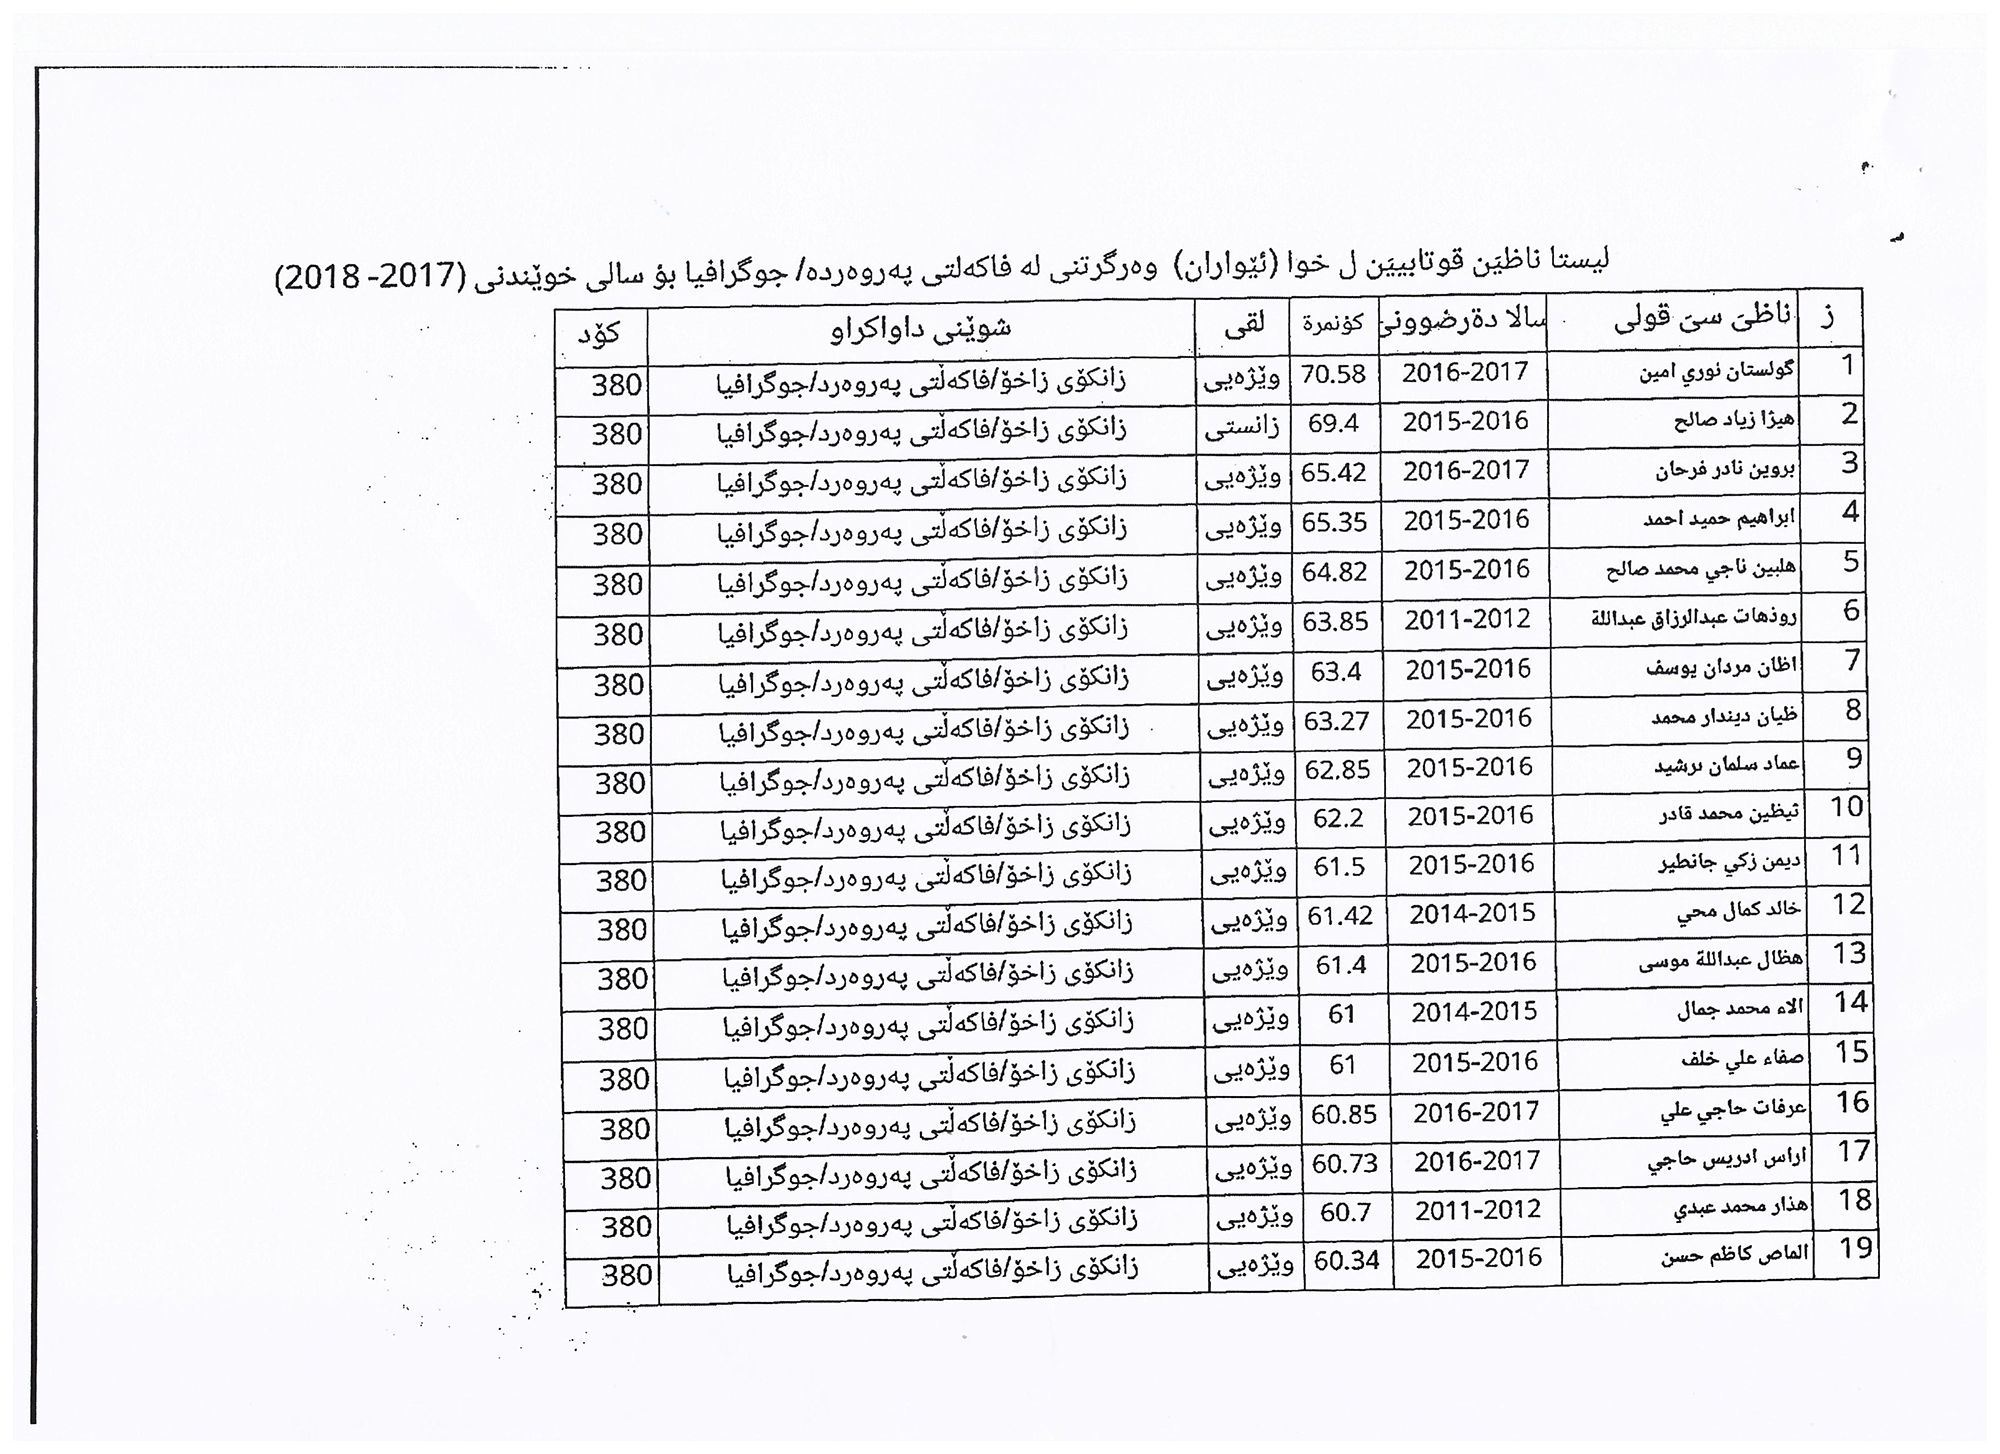 ليستا ناظيَن قوتابييَن ل خوا (ئێواران) وەرگرتنى لە فاکەلتى پەروەردە/ جوگرافيا بۆ سالى خوێندنى (2017- 2018)
ز ناظىَ سىَ قولى سالا دةرضوونىَ كؤنمرة لقى شوێنى داواکراو کۆد
1 گولستان نوري امين 2016-2017 70.58 وێژەیی زانکۆی زاخۆ/فاکەڵتی پەروەرد/جوگرافیا 380
2 هيژا زياد صالح 2015-2016 69.4 زانستی زانکۆی زاخۆ/فاکەڵتی پەروەرد/جوگرافیا 380
3 بروين نادر فرحان 2016-2017 65.42 وێژەیی زانکۆی زاخۆ/فاکەڵتی پەروەرد/جوگرافیا 380
4 ابراهيم حميد احمد 2015-2016 65.35 وێژەیی زانکۆی زاخۆ/فاکەڵتی پەروەرد/جوگرافیا 380
5 هلبين ناجي محمد صالح 2015-2016 64.82 وێژەیی زانکۆی زاخۆ/فاکەڵتی پەروەرد/جوگرافیا 380
6 روذهات عبدالرزاق عبداللة 2011-2012 63.85 وێژەیی زانکۆی زاخۆ/فاکەڵتی پەروەرد/جوگرافیا 380
7 اظان مردان يوسف 2015-2016 63.4 وێژەیی زانکۆی زاخۆ/فاکەڵتی پەروەرد/جوگرافیا 380
8 ظيان ديندار محمد 2015-2016 63.27 وێژەیی زانکۆی زاخۆ/فاکەڵتی پەروەرد/جوگرافیا 380
9 عماد سلمان برشيد 2015-2016 62.85 وێژەیی زانکۆی زاخۆ/فاکەڵتی پەروەرد/جوگرافیا 380
10 ئيظين محمد قادر 2015-2016 62.2 وێژەیی زانکۆی زاخۆ/فاکەڵتی پەروەرد/جوگرافیا 380
11 ديمن زكي جانطير 2015-2016 61.5 وێژەیی زانکۆی زاخۆ/فاکەڵتی پەروەرد/جوگرافیا 380
12 خالد كمال محي 2014-2015 61.42 وێژەیی زانکۆی زاخۆ/فاکەڵتی پەروەرد/جوگرافیا 380
13 هظال عبداللة موسى 2015-2016 61.4 وێژەیی زانکۆی زاخۆ/فاکەڵتی پەروەرد/جوگرافیا 380
14 الاء محمد جمال 2014-2015 61 وێژەیی زانکۆی زاخۆ/فاکەڵتی پەروەرد/جوگرافیا 380
15 صفاء علي خلف 2015-2016 61 وێژەیی زانکۆی زاخۆ/فاکەڵتی پەروەرد/جوگرافیا 380
16 عرفات حاجي علي 2016-2017 60.85 وێژەیی زانکۆی زاخۆ/فاکەڵتی پەروەرد/جوگرافیا 380
17 اراس ادريس حاجي 2016-2017 60.73 وێژەیی زانکۆی زاخۆ/فاکەڵتی پەروەرد/جوگرافیا 380
18 هذار محمد عبدي 2011-2012 60.7 وێژەیی زانکۆی زاخۆ/فاکەڵتی پەروەرد/جوگرافیا 380
19 الماص كاظم حسن 2015-2016 60.34 وێژەیی زانکۆی زاخۆ/فاکەڵتی پەروەرد/جوگرافیا 380